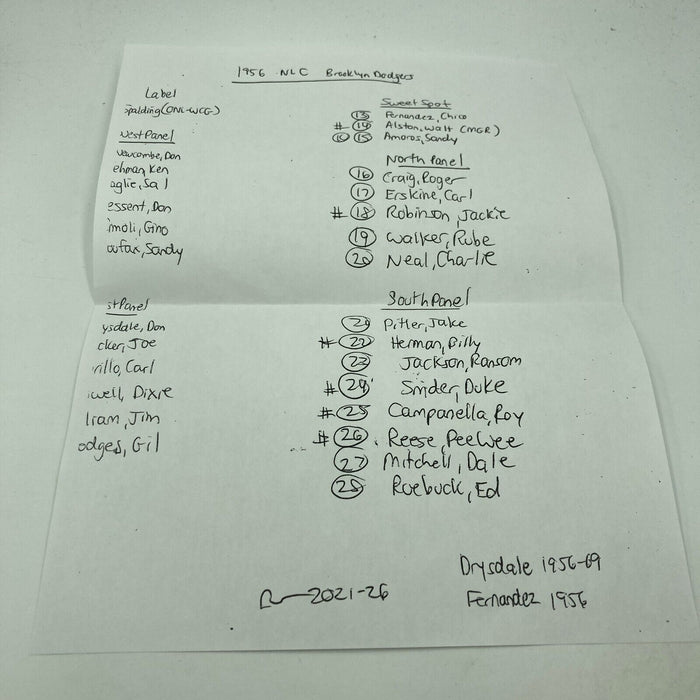 1956 NLC Brooklyn Dodgers
Label
Spalding(ONL-WCG)
West Panel
ewcombe, Don
ehman, Ken
aglie, Sal
essent, Don
imoli, Gino
oufax, Sandy
st Panel
ysdale, Don
cker, Joe
rillo, Carl
owell, Dixie
liam, Jim
odges, Gil
Sweet Spot
13 Fernandez, Chico
# 14 Alston, Walt (MGR)
15 Amoros, Sandy
North Panel
16 Craig, Roger
17 Erskine, Carl
# 18 Robinson, Jackie
19 Walker, Rube
20 Neal, Charlie
South Panel
21 Pitler, Jake
# 22 Herman, Billy
23 Jackson, Ransom
# 24 Snider, Duke
# 25 Campanella, Roy
# 26 Reese, PeeWee
27 Mitchell, Dale
28 Roebuck, Ed
Drysdale 1956-69
Fernandez 1956
2021-26